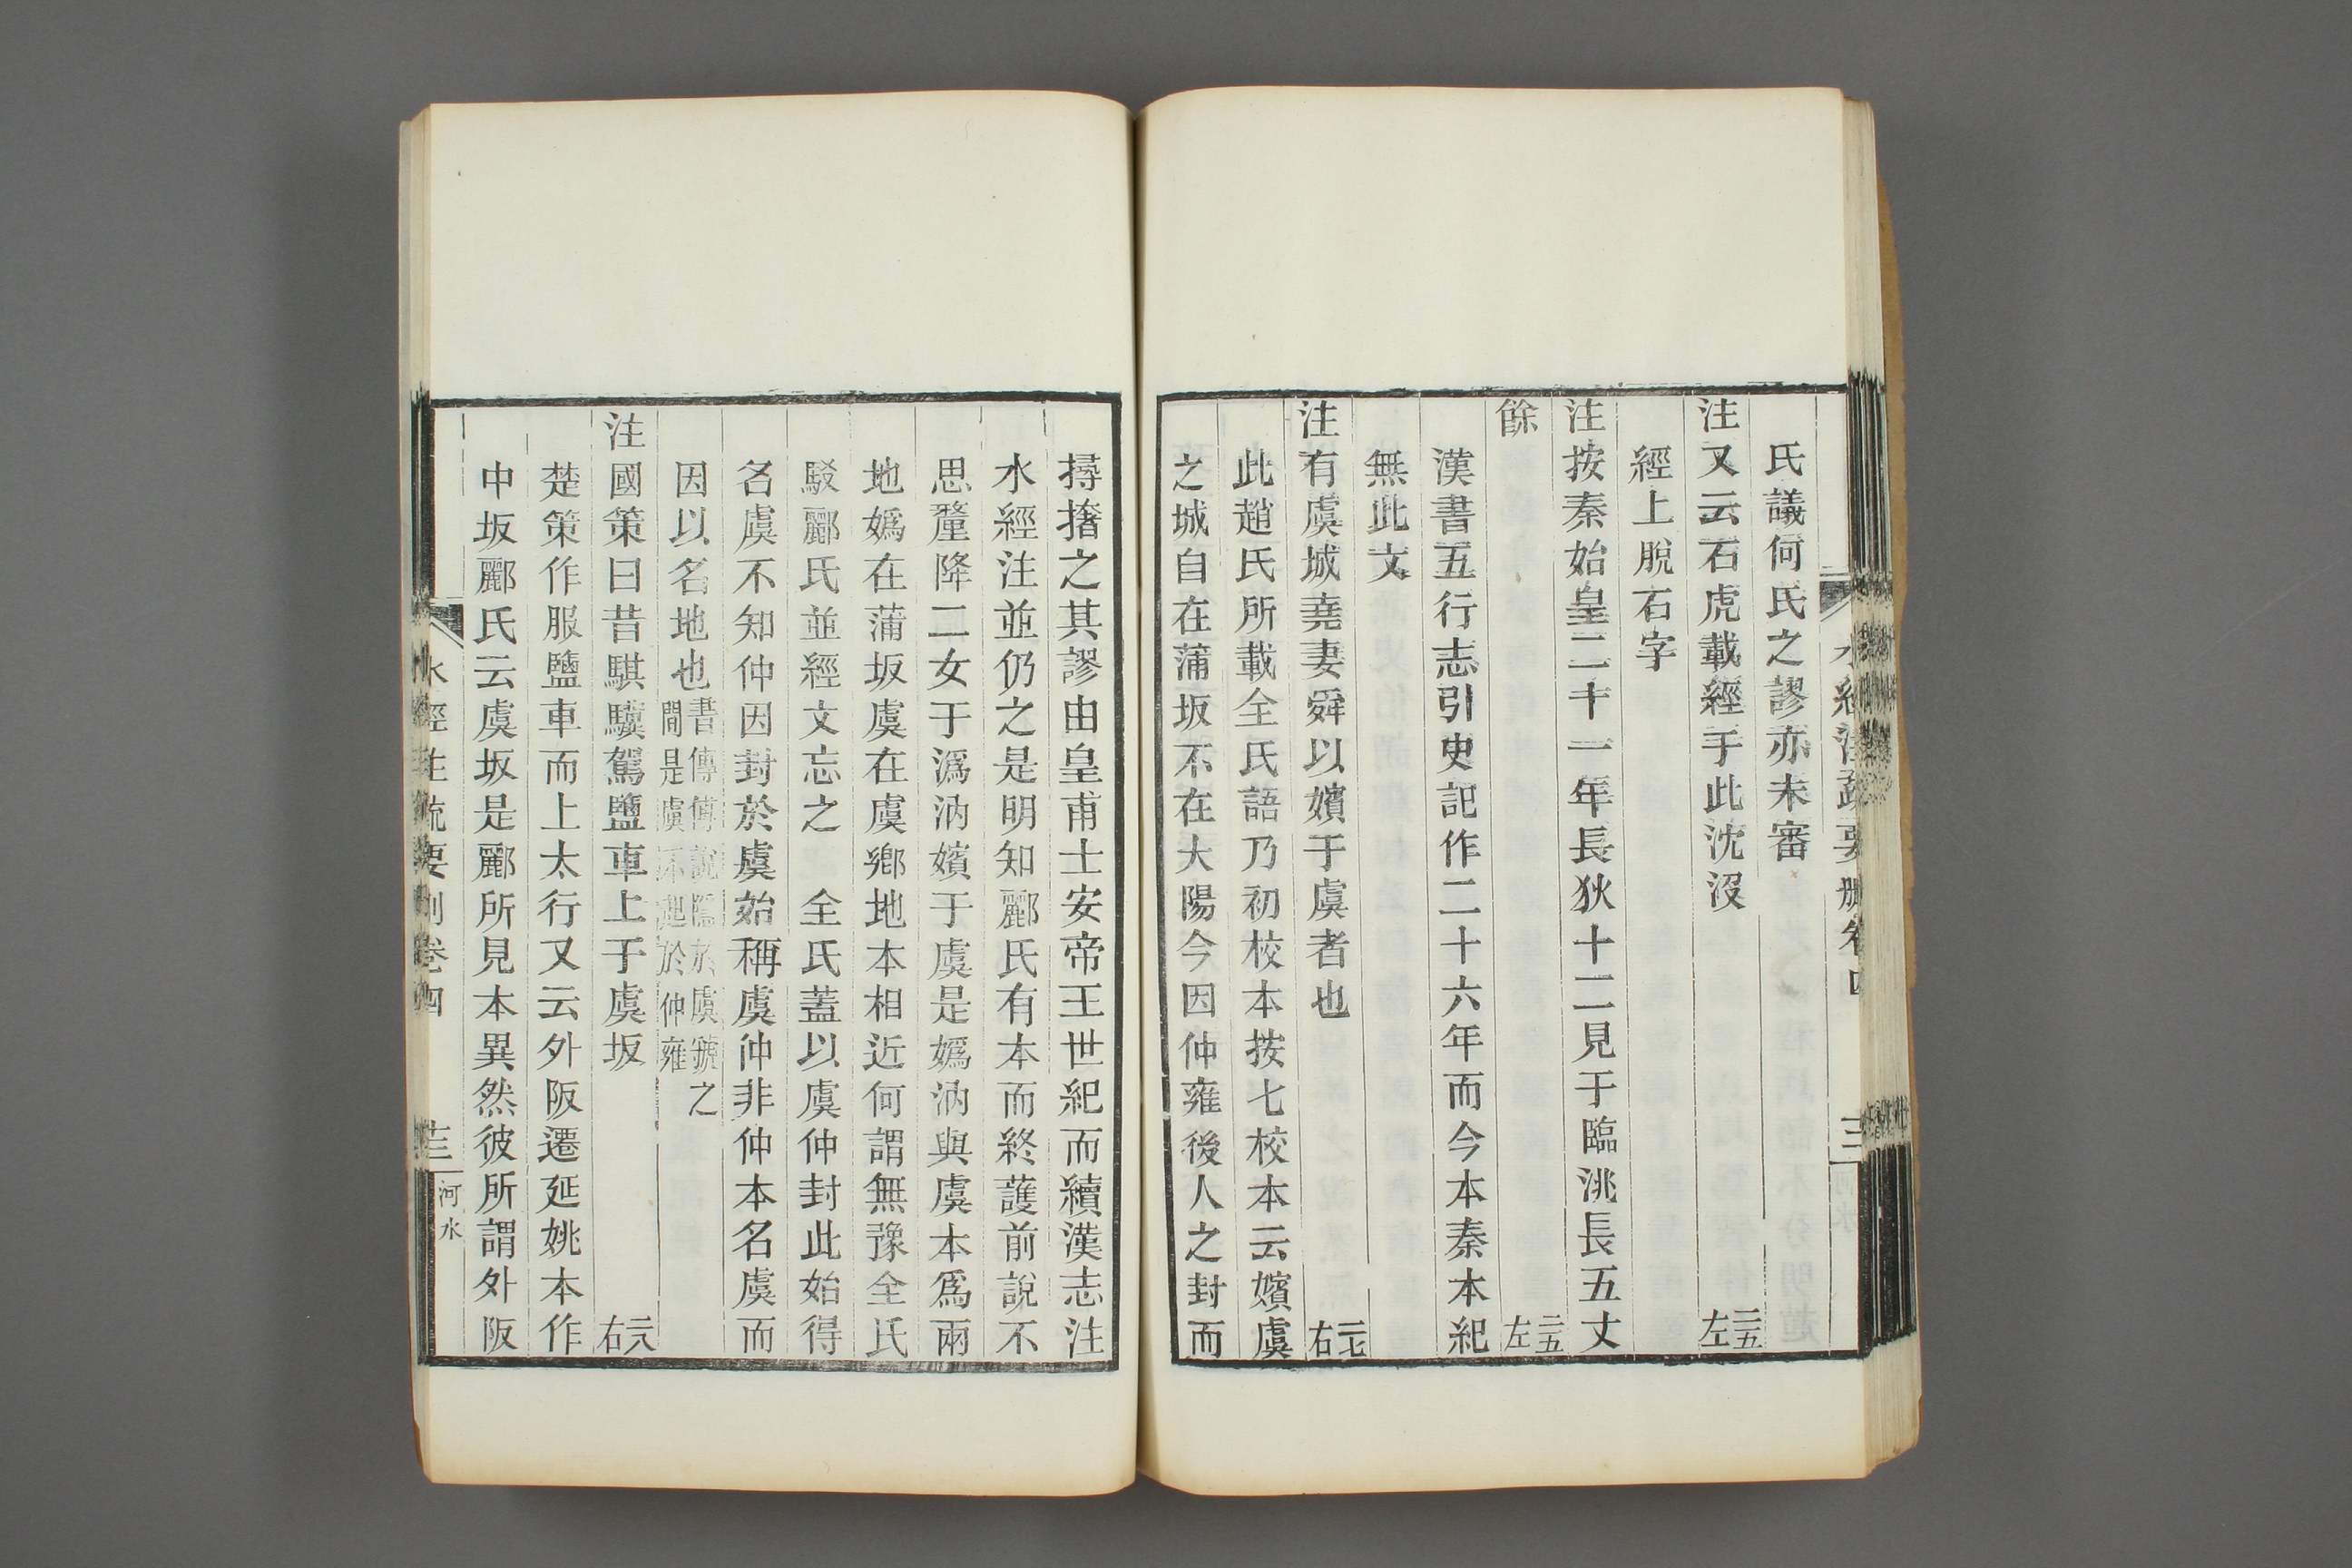 水經注疏要刪卷四
三
氏議何氏之謬亦未審
注又云石虎載經于此沈沒 二五左
經上脫石字
注按秦始皇二十一年長狄十二見于臨洮長五丈
餘 二五左
漢書五行志引史記作二十六年而今本秦本紀
無此文
注有虞城堯妻舜以嬪于虞者也 二七右
此趙氏所載全氏語乃初校本按七校本云嬪虞
之城自在蒲坂不在大陽今因仲雍後人之封而
撏撦之其謬由皇甫士安帝王世紀而續漢志注
水經注並仍之是明知酈氏有本而終護前說不
思釐降二女于溈汭嬪于虞是媯汭與虞本爲兩
地媯在蒲坂虞在虞鄉地本相近何謂無豫全氏
駁酈氏並經文忘之 全氏蓋以虞仲封此始得
名虞不知仲因封於虞始稱虞仲非仲本名虞而
因以名地也書傳傅說隱於虞虢之間是虞不起於仲雍
注國策曰昔騏驥駕鹽車上于虞坂 二八右
楚策作服鹽車而上太行又云外阪遷延姚本作
中坂酈氏云虞坂是酈所見本異然彼所謂外阪
水經注疏要刪卷四
十三
河水